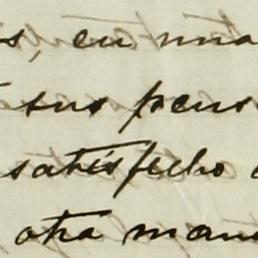 s, en una
sus pens
satisfecho
otra man